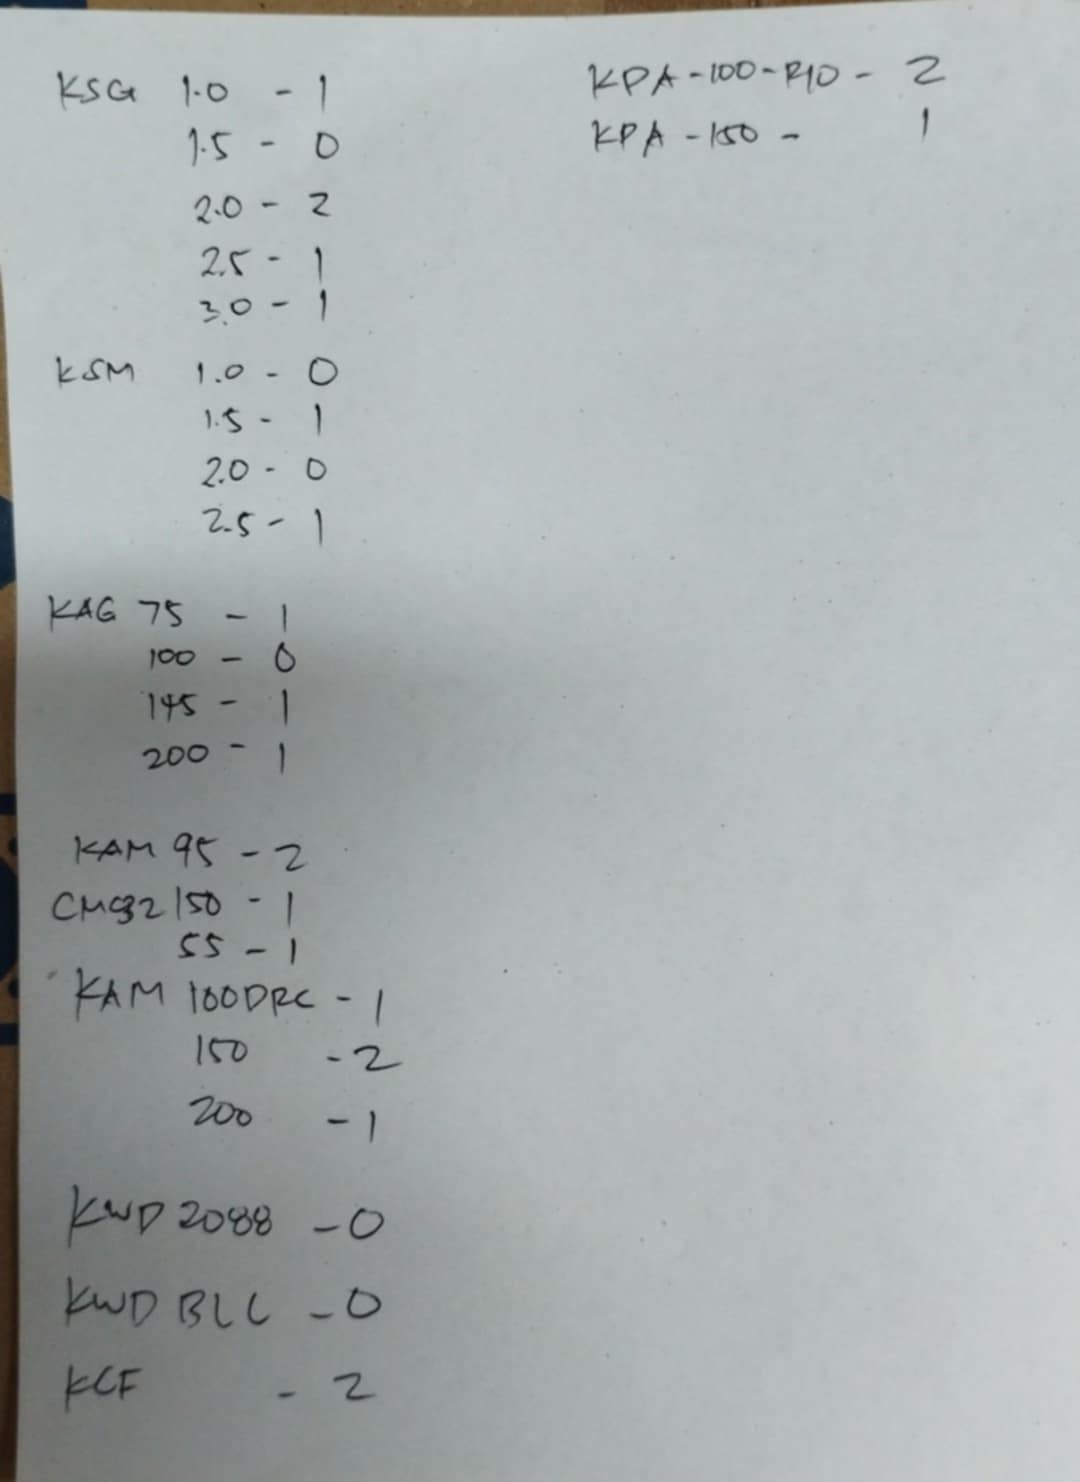 KSG 1.0 - 1
1.5 - 0
2.0 - 2
2.5 - 1
3.0 - 1
KSM 1.0 - 0
1.5 - 1
2.0 - 0
2.5 - 1
KAG 75 - 1
100 - 0
145 - 1
200 - 1
KAM 95 - 2
150 - 1
55 - 1
KAM 100DRC - 1
150 - 2
200 - 1
KWD 2088 - 0
KWD BLC - 0
KCF - 2
KPA-100-R10 - 2
KPA-150 - 1